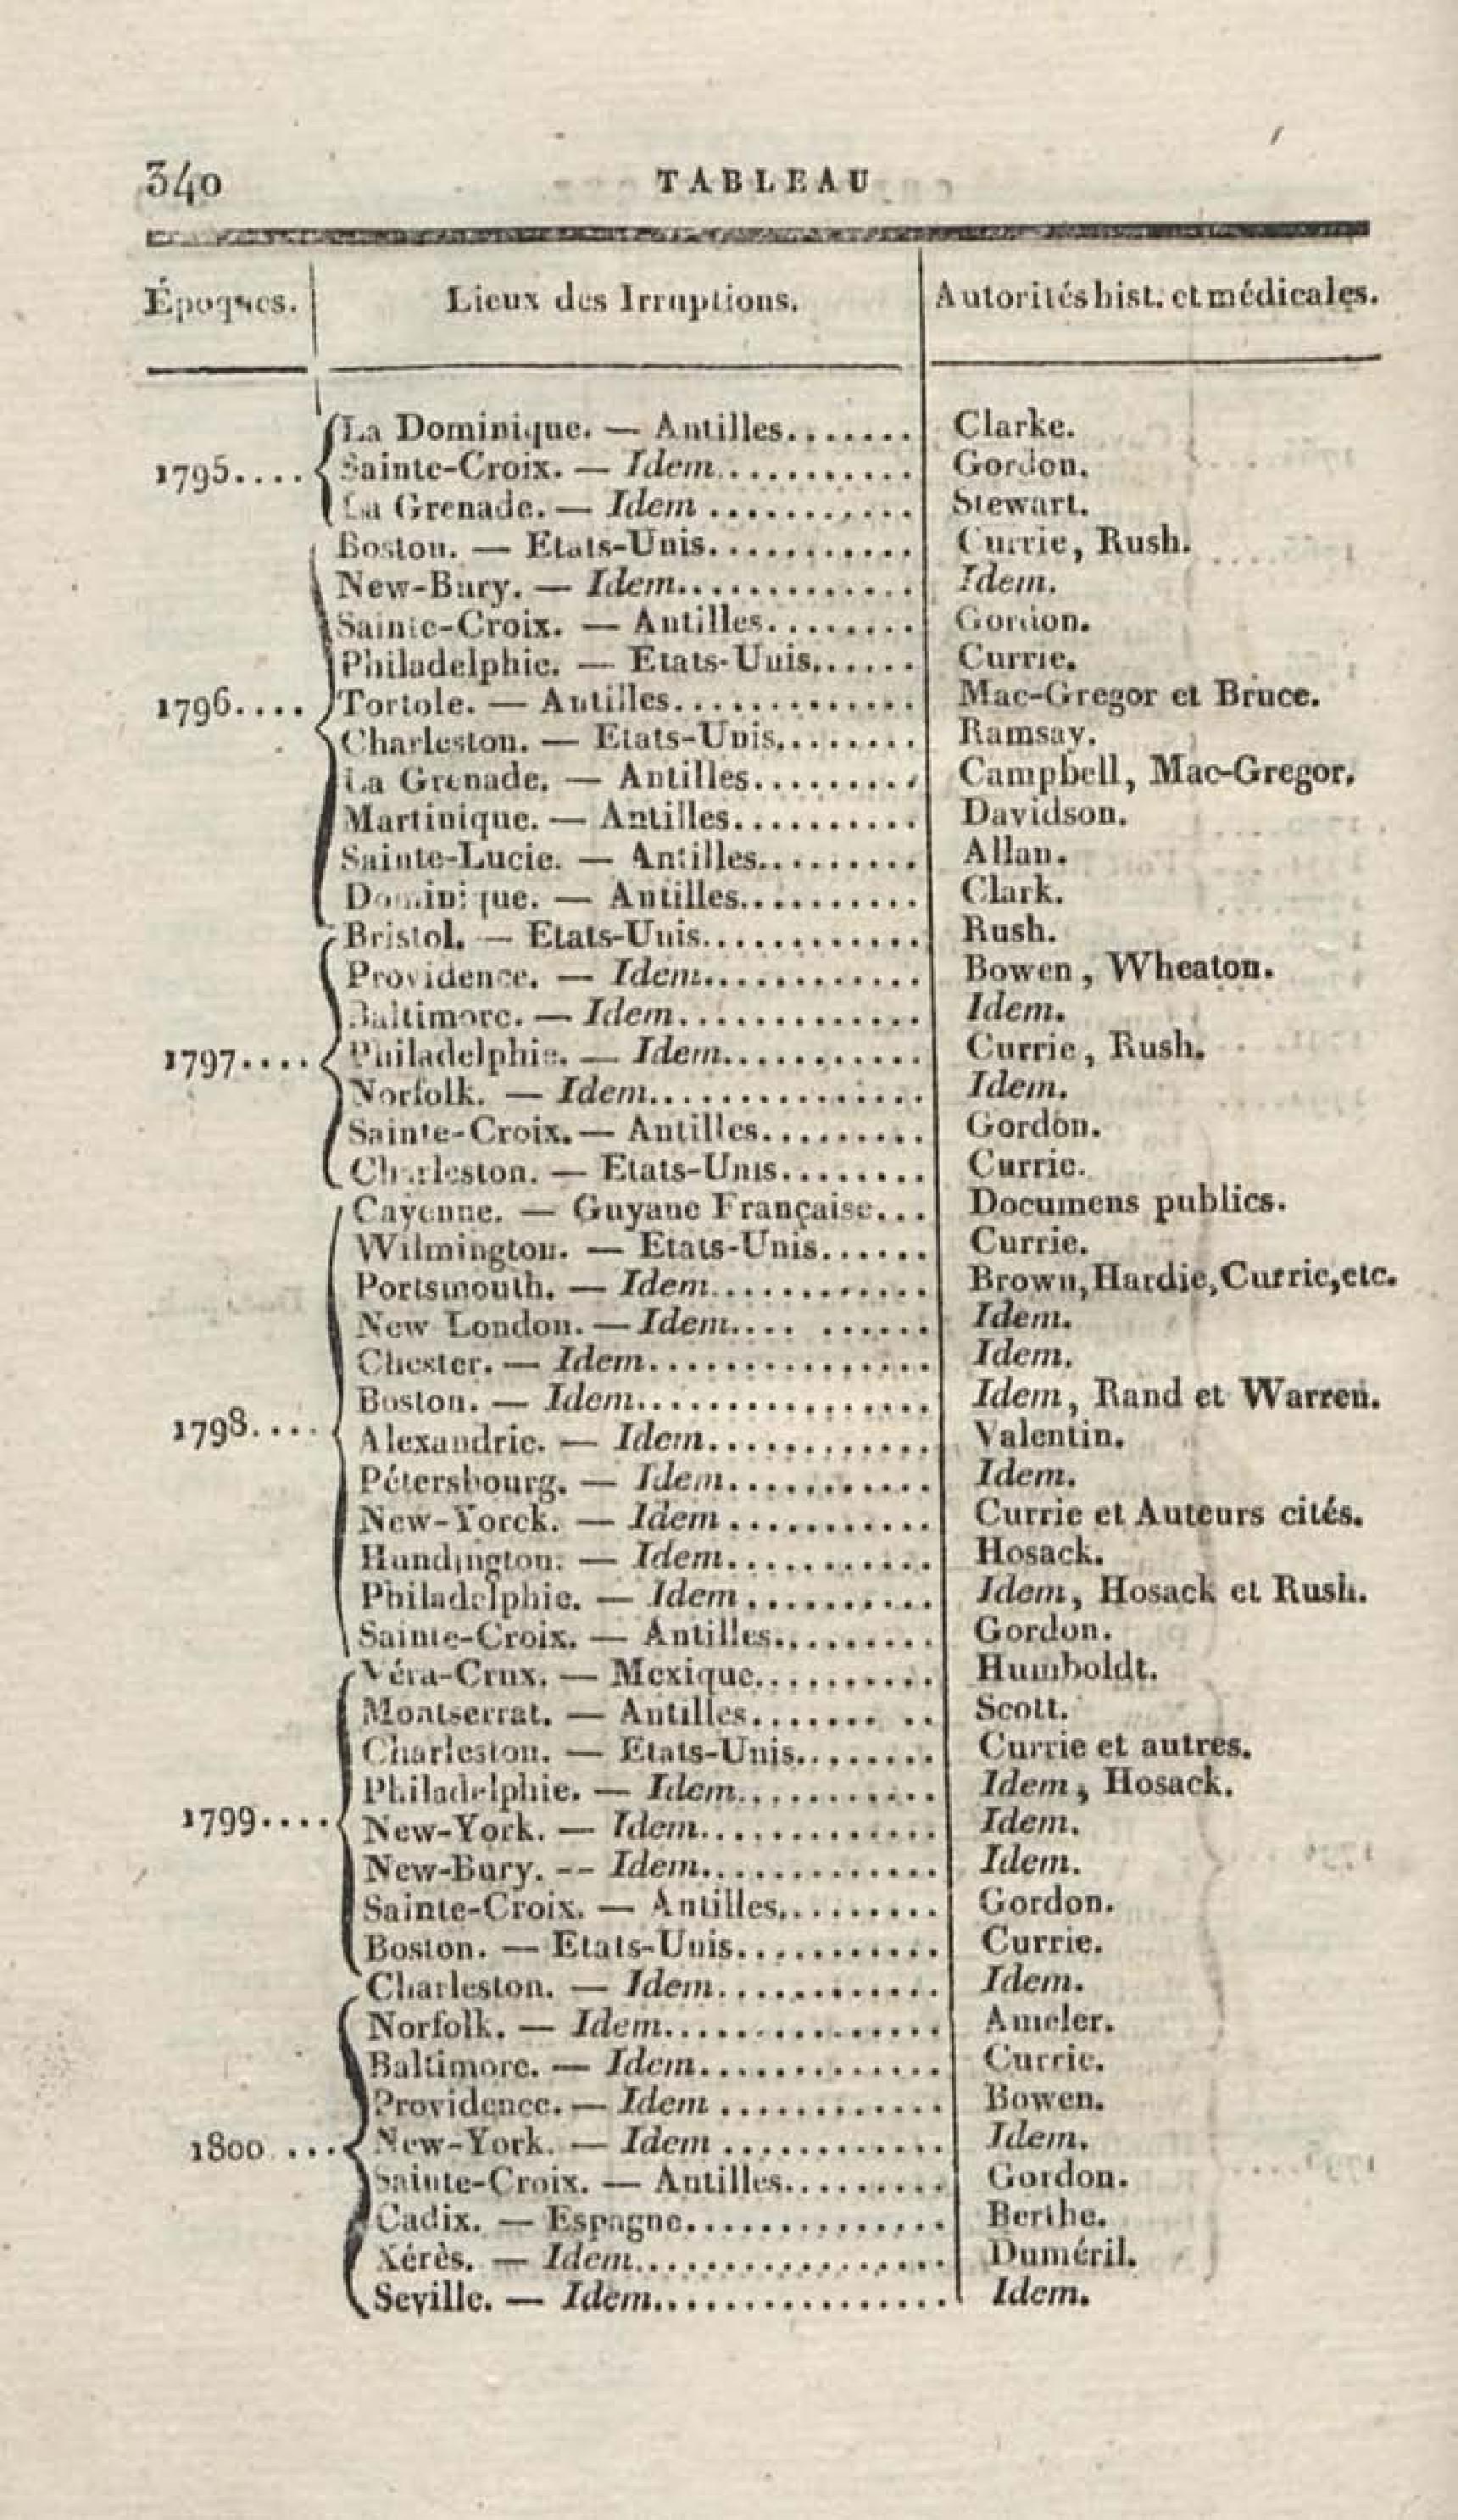 340 TABLEAU
Époques. Lieux des Irruptions. Autorités hist. et médicales.
La Dominique. — Antilles....... Clarke.
1795.... Sainte-Croix. — Idem........... Gordon.
La Grenade. — Idem ........... Stewart.
Boston. — Etats-Unis........... Currie, Rush.
New-Bury. — Idem............. Idem.
Sainte-Croix. — Antilles........ Gordon.
Philadelphie. — Etats-Unis...... Currie.
1796.... Tortole. — Antilles............. Mac-Gregor et Bruce.
Charleston. — Etats-Unis........ Ramsay.
La Grenade. — Antilles......... Campbell, Mac-Gregor.
Martinique. — Antilles.......... Davidson.
Sainte-Lucie. — Antilles......... Allan.
Dominique. — Antilles.......... Clark.
Bristol. — Etats-Unis............ Rush.
Providence. — Idem............ Bowen, Wheaton.
Baltimore. — Idem............. Idem.
1797.... Philadelphie. — Idem........... Currie, Rush.
Norfolk. — Idem............... Idem.
Sainte-Croix. — Antilles......... Gordon.
Charleston. — Etats-Unis........ Currie.
Cayenne. — Guyane Française... Documens publics.
Wilmington. — Etats-Unis...... Currie.
Portsmouth. — Idem............ Brown, Hardie, Currie, etc.
New London. — Idem.... ...... Idem.
Chester. — Idem............... Idem.
Boston. — Idem................ Idem, Rand et Warren.
1798.... Alexandrie. — Idem............ Valentin.
Pétersbourg. — Idem........... Idem.
New-Yorck. — Idem ........... Currie et Auteurs cités.
Hundington. — Idem........... Hosack.
Philadelphie. — Idem .......... Idem, Hosack et Rush.
Sainte-Croix. — Antilles......... Gordon.
Véra-Crux. — Mexique.......... Humboldt.
Montserrat. — Antilles....... .. Scott.
Charleston. — Etats-Unis........ Currie et autres.
Philadelphie. — Idem........... Idem, Hosack.
1799.... New-York. — Idem............. Idem.
New-Bury. -- Idem............. Idem.
Sainte-Croix. — Antilles......... Gordon.
Boston. — Etats-Unis........... Currie.
Charleston. — Idem............ Idem.
Norfolk. — Idem............... Ameler.
Baltimore. — Idem............. Currie.
Providence. — Idem ............ Bowen.
1800 ... New-York. — Idem ............ Idem.
Sainte-Croix. — Antilles......... Gordon.
Cadix. — Espagne.............. Berthe.
Xérès. — Idem................. Duméril.
Seville. — Idem................ Idem.